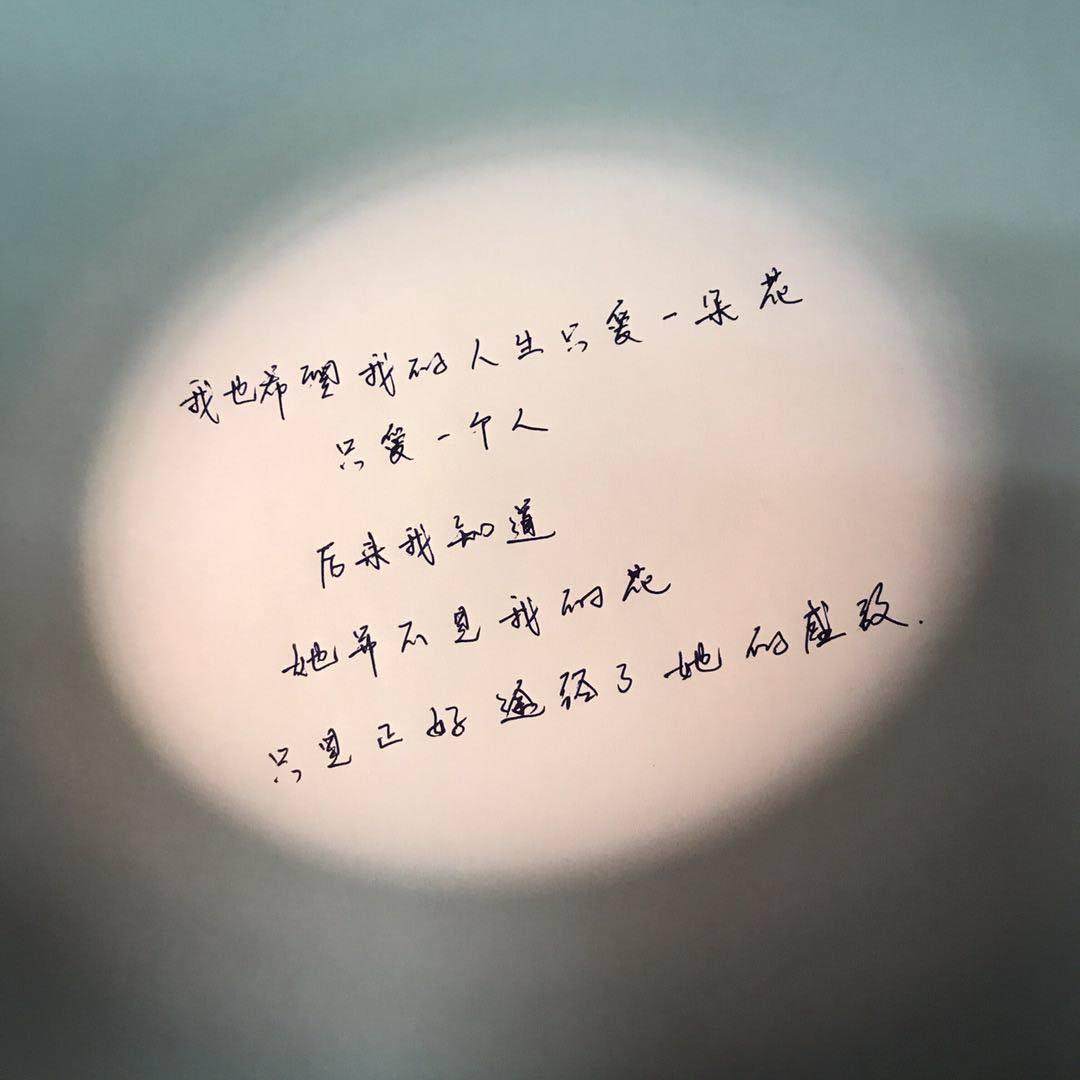 我也希望我的人生只爱一朵花
只爱一个人
后来我知道
她并不是我的花
只是正好途径了她的盛放.